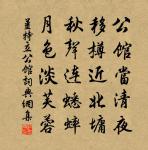 公館當清夜
移樽近北墉
秋聲連蟋蟀
月色淡芙蓉
持立公館詞典網集